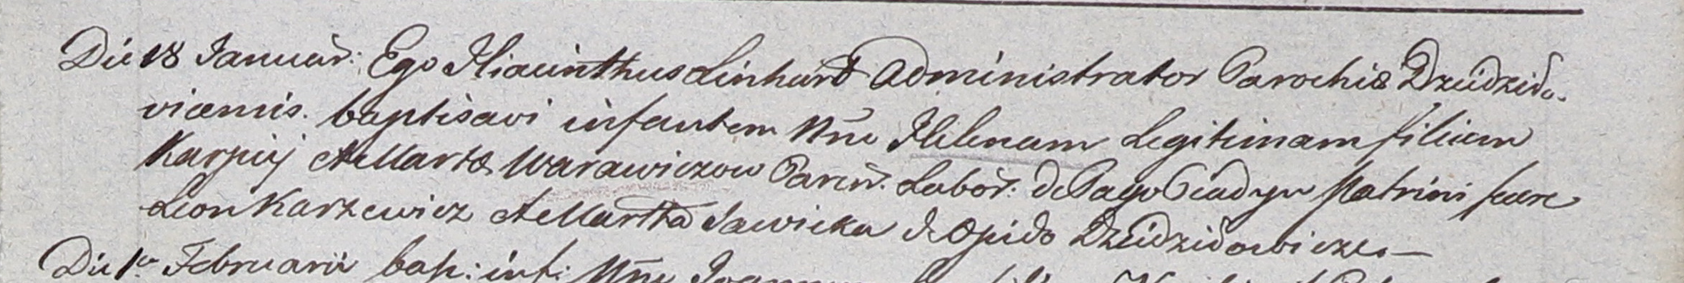 Die 18 Januar: Ego Hiacinthus Linhart Administrator Parochiæ Dzeidzido-
vicensis. baptisavi infantem Nne Helenam Legitimam filiam
Karpij et Martæ Warawiczow Paren. Labor. de Pago Patrini fuere
Leon Karzewicz et Martha Sawicka de Opido Dzeidzidowicze—
Die 1a Februarii bap: inf: Nne